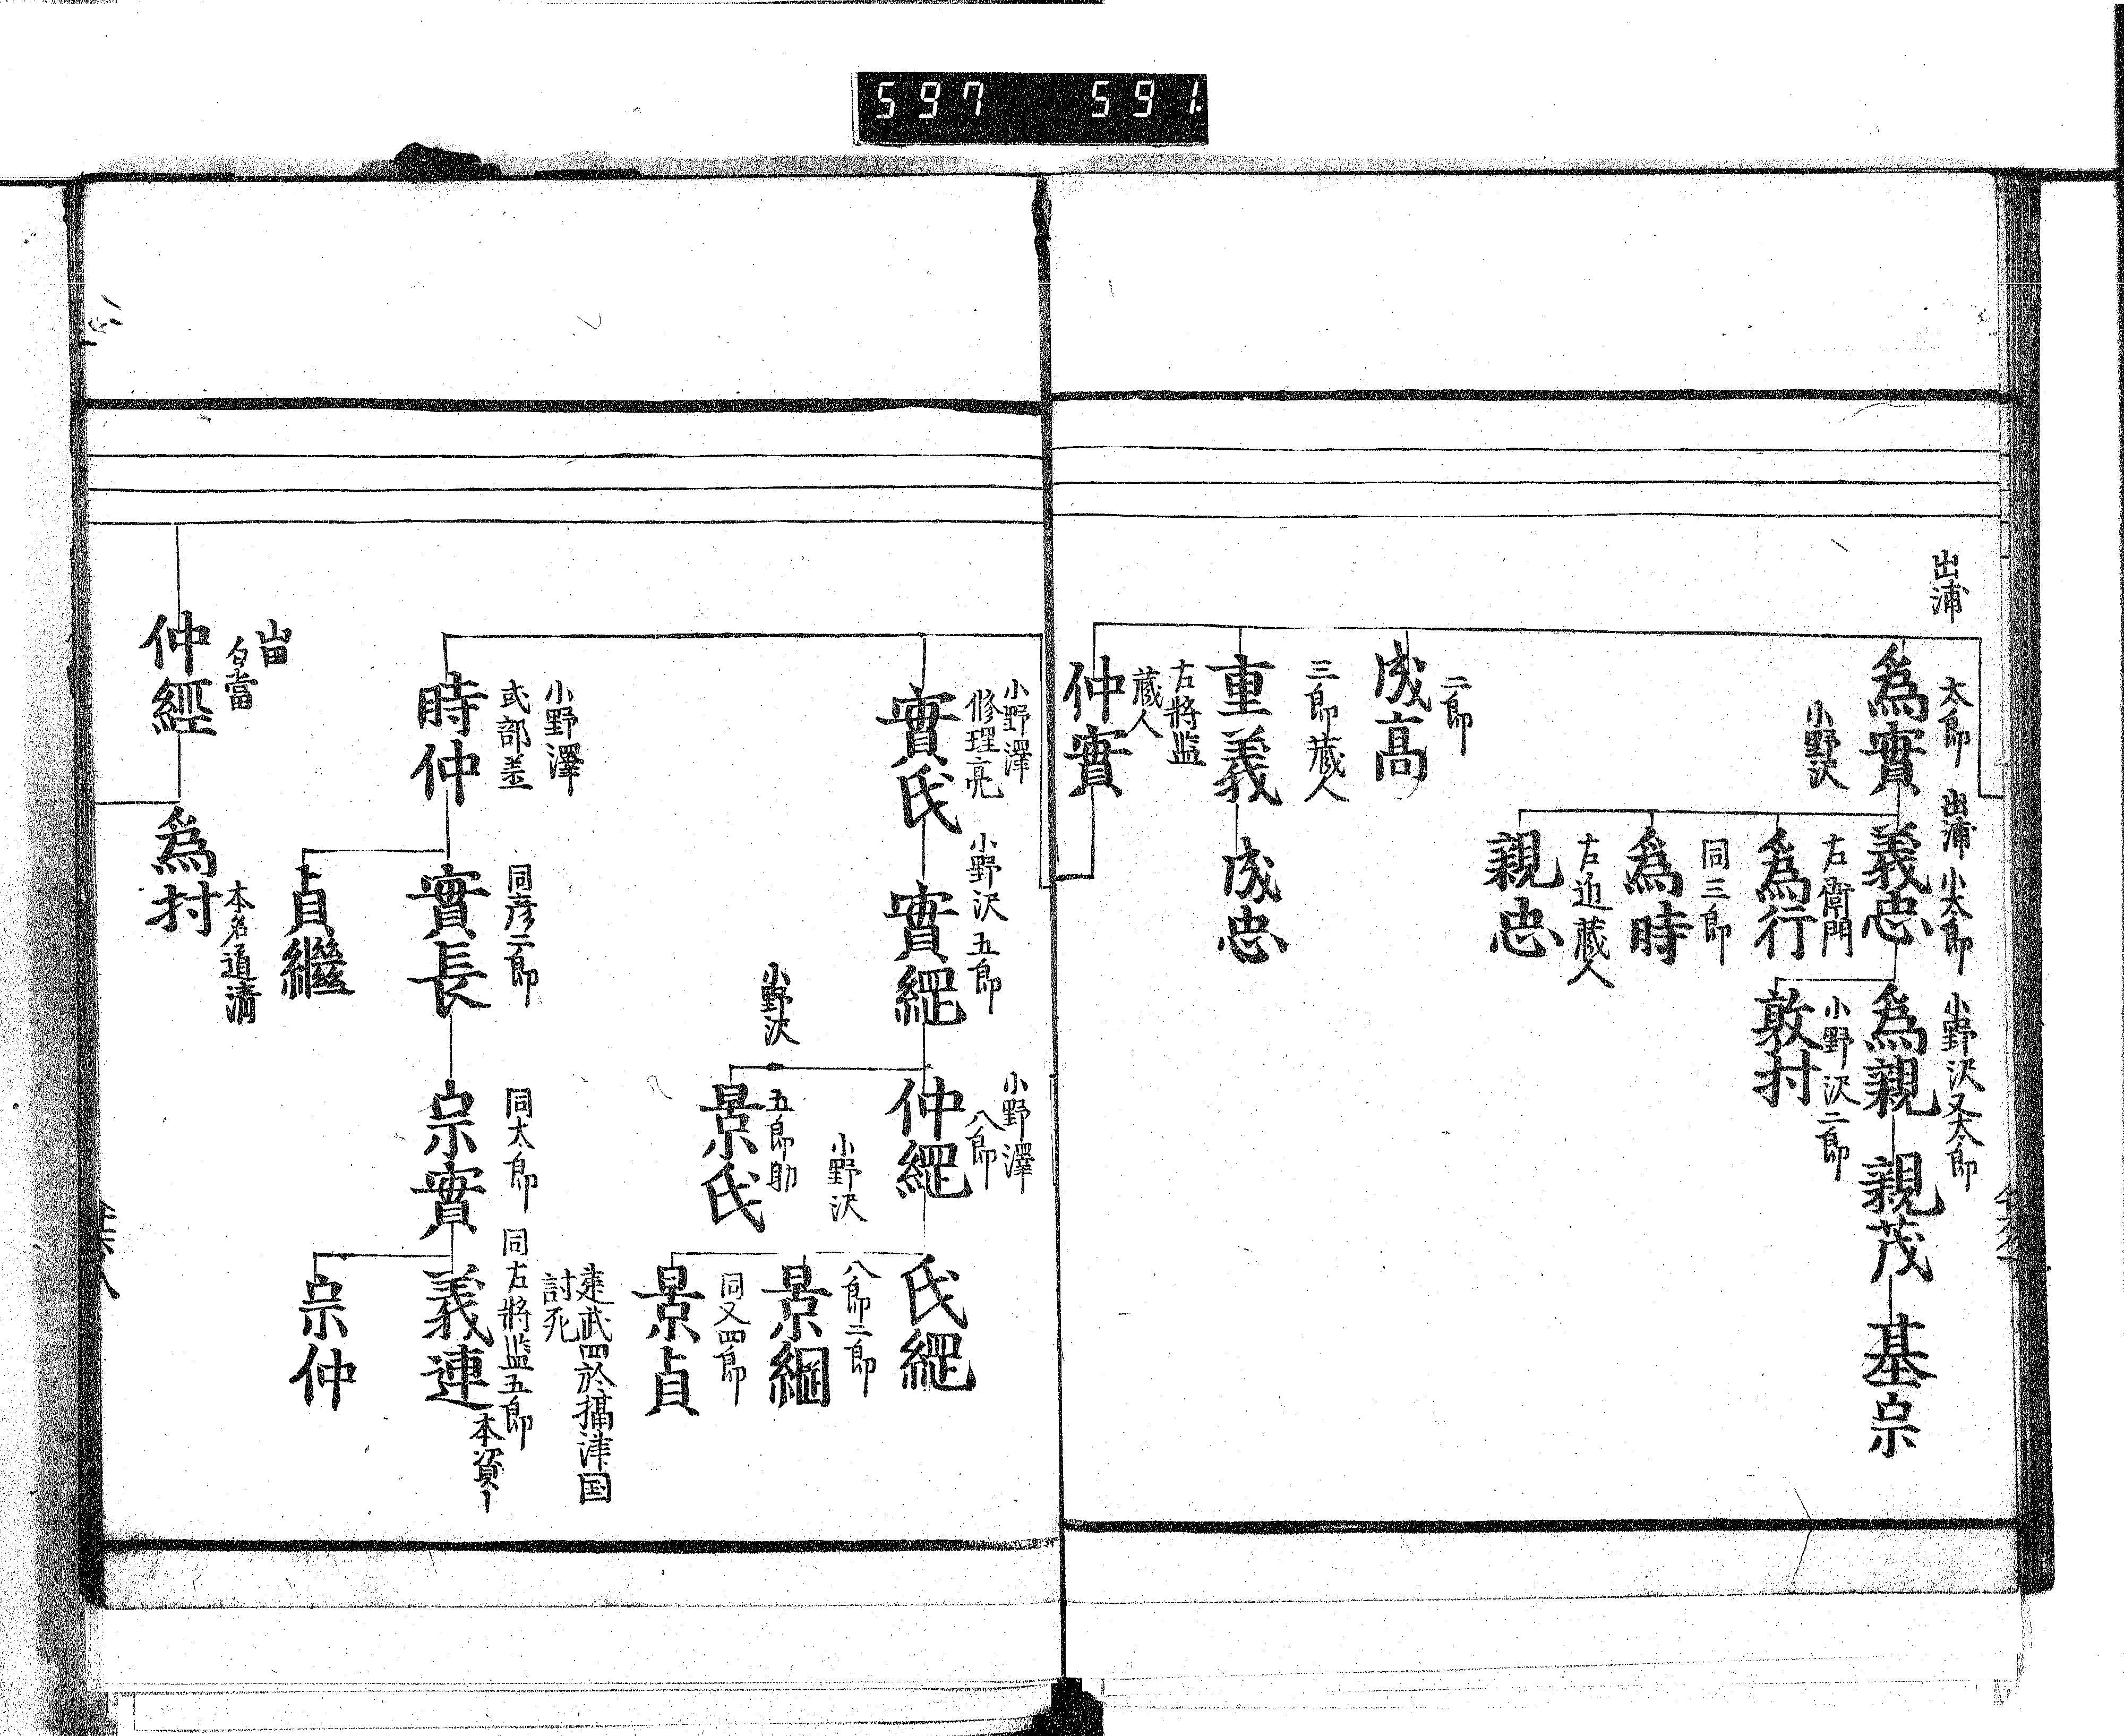 597 591
出浦
太郎
為實
小野沢
出浦小太郎
義忠
小野沢又太郎
為親
親茂
基宗
右衛門
為行
小野沢二郎
敦村
同三郎
為時
右近蔵人
親忠
二郎
成高
三郎蔵人
重義
成忠
右将监
蔵人
仲實
小野澤
修理亮
實氏
小野沢五郎
實綱
小野澤
八郎
仲綱
氏綱
小野沢
八郎二郎
景綱
同又四郎
景貞
小野沢
五郎助
景氏
小野澤
式部丞
時仲
同彦二郎
實長
同太郎
宗實
建武四於攝津国
討死
同右将监五郎
義連
本資
宗仲
貞繼
仲經
本名道清
為村